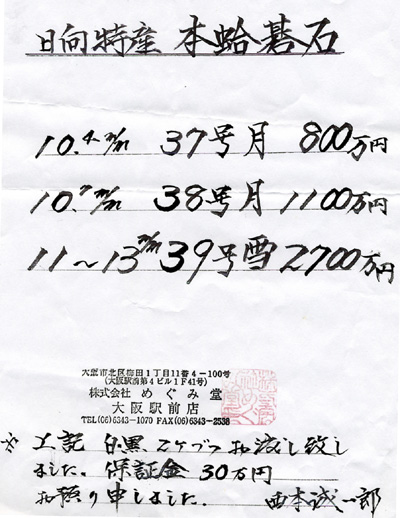 日向特産 本蛤碁石
10.4m/m 37号月 800万円
10.7m/m 38号月 1100万円
11~13m/m 39号雪 2700万円
大阪市北区梅田1丁目11番4-100号
(大阪駅前第4ビル1F41号)
株式会社 めぐみ堂
大阪駅前店
TEL(06)6343-1070 FAX(06)6343-2538
上記 白黒 2ケづつお渡し致し
ました。保証金 30万円
お預り申しました。 西本誠一郎